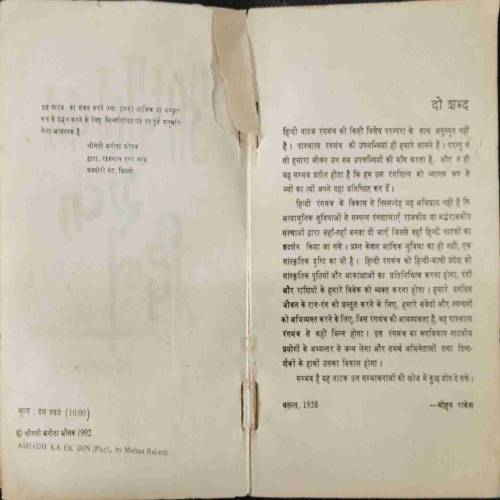 इस नाटक का मंचन करने तथा इसको आंशिक या सम्पूर्ण
रूप से उद्धृत करने के लिए निम्नलिखित पते पर पूर्व अनुमति
लेना आवश्यक है :
श्रीमती अनीता औलक
द्वारा, राजपाल एण्ड सन्ज़
कश्मीरी गेट, दिल्ली
मूल्य : दस रुपये (10.00)
© श्रीमती अनीता औलक 1992
ASHADH KA EK DIN (Play), by Mohan Rakesh
दो शब्द
हिन्दी नाटक रंगमंच की किसी विशेष परम्परा के साथ अनुस्यूत नहीं
है। पाश्चात्य रंगमंच की उपलब्धियाँ ही हमारे सामने हैं। परन्तु न
तो हमारा जीवन उन सब उपलब्धियों की माँग करता है, और न ही
यह सम्भव प्रतीत होता है कि हम उस रंगशिल्प को व्यापक रूप से
ज्यों का त्यों अपने यहां प्रतिष्ठित कर दें।
हिन्दी रंगमंच के विकास से निस्सन्देह यह अभिप्राय नहीं है कि
अत्याधुनिक सुविधाओं से सम्पन्न रंगशालाएँ राजकीय या अर्द्धराजकीय
संस्थाओं द्वारा जहाँ-तहाँ बनवा दी जाएँ जिससे वहाँ हिन्दी नाटकों का
प्रदर्शन किया जा सके। प्रश्न केवल आर्थिक सुविधा का ही नहीं, एक
सांस्कृतिक दृष्टि का भी है। हिन्दी रंगमंच को हिन्दी-भाषी प्रदेश की
सांस्कृतिक पूर्तियों और आकांक्षाओं का प्रतिनिधित्व करना होगा, रंगों
और राशियों के हमारे विवेक को व्यक्त करना होगा। हमारे दैनंदिन
जीवन के राग-रंग को प्रस्तुत करने के लिए, हमारे संवेदों और स्पन्दनों
को अभिव्यक्त करने के लिए, जिस रंगमंच की आवश्यकता है, वह पाश्चात्य
रंगमंच से कहीं भिन्न होगा। इस रंगमंच का रूपविधान नाटकीय
प्रयोगों के अभ्यन्तर से जन्म लेगा और समर्थ अभिनेताओं तथा दिग्द-
र्शकों के हाथों उसका विकास होगा।
सम्भव है यह नाटक उन सम्भावनाओं की खोज में कुछ योग दे सके।
बसन्त, 1958 —मोहन राकेश